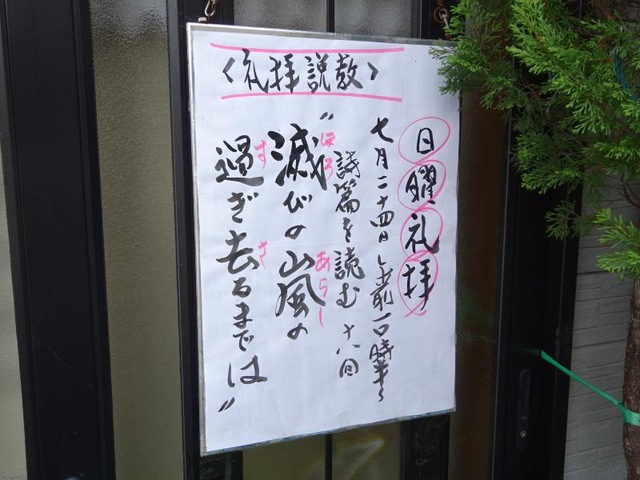 〈礼拝説教〉
日曜礼拝
七月二十四日 午前一〇時半
詩篇を読む 十八回
ほろ あらし
“滅びの嵐の
す さ
過ぎ去るまでは”